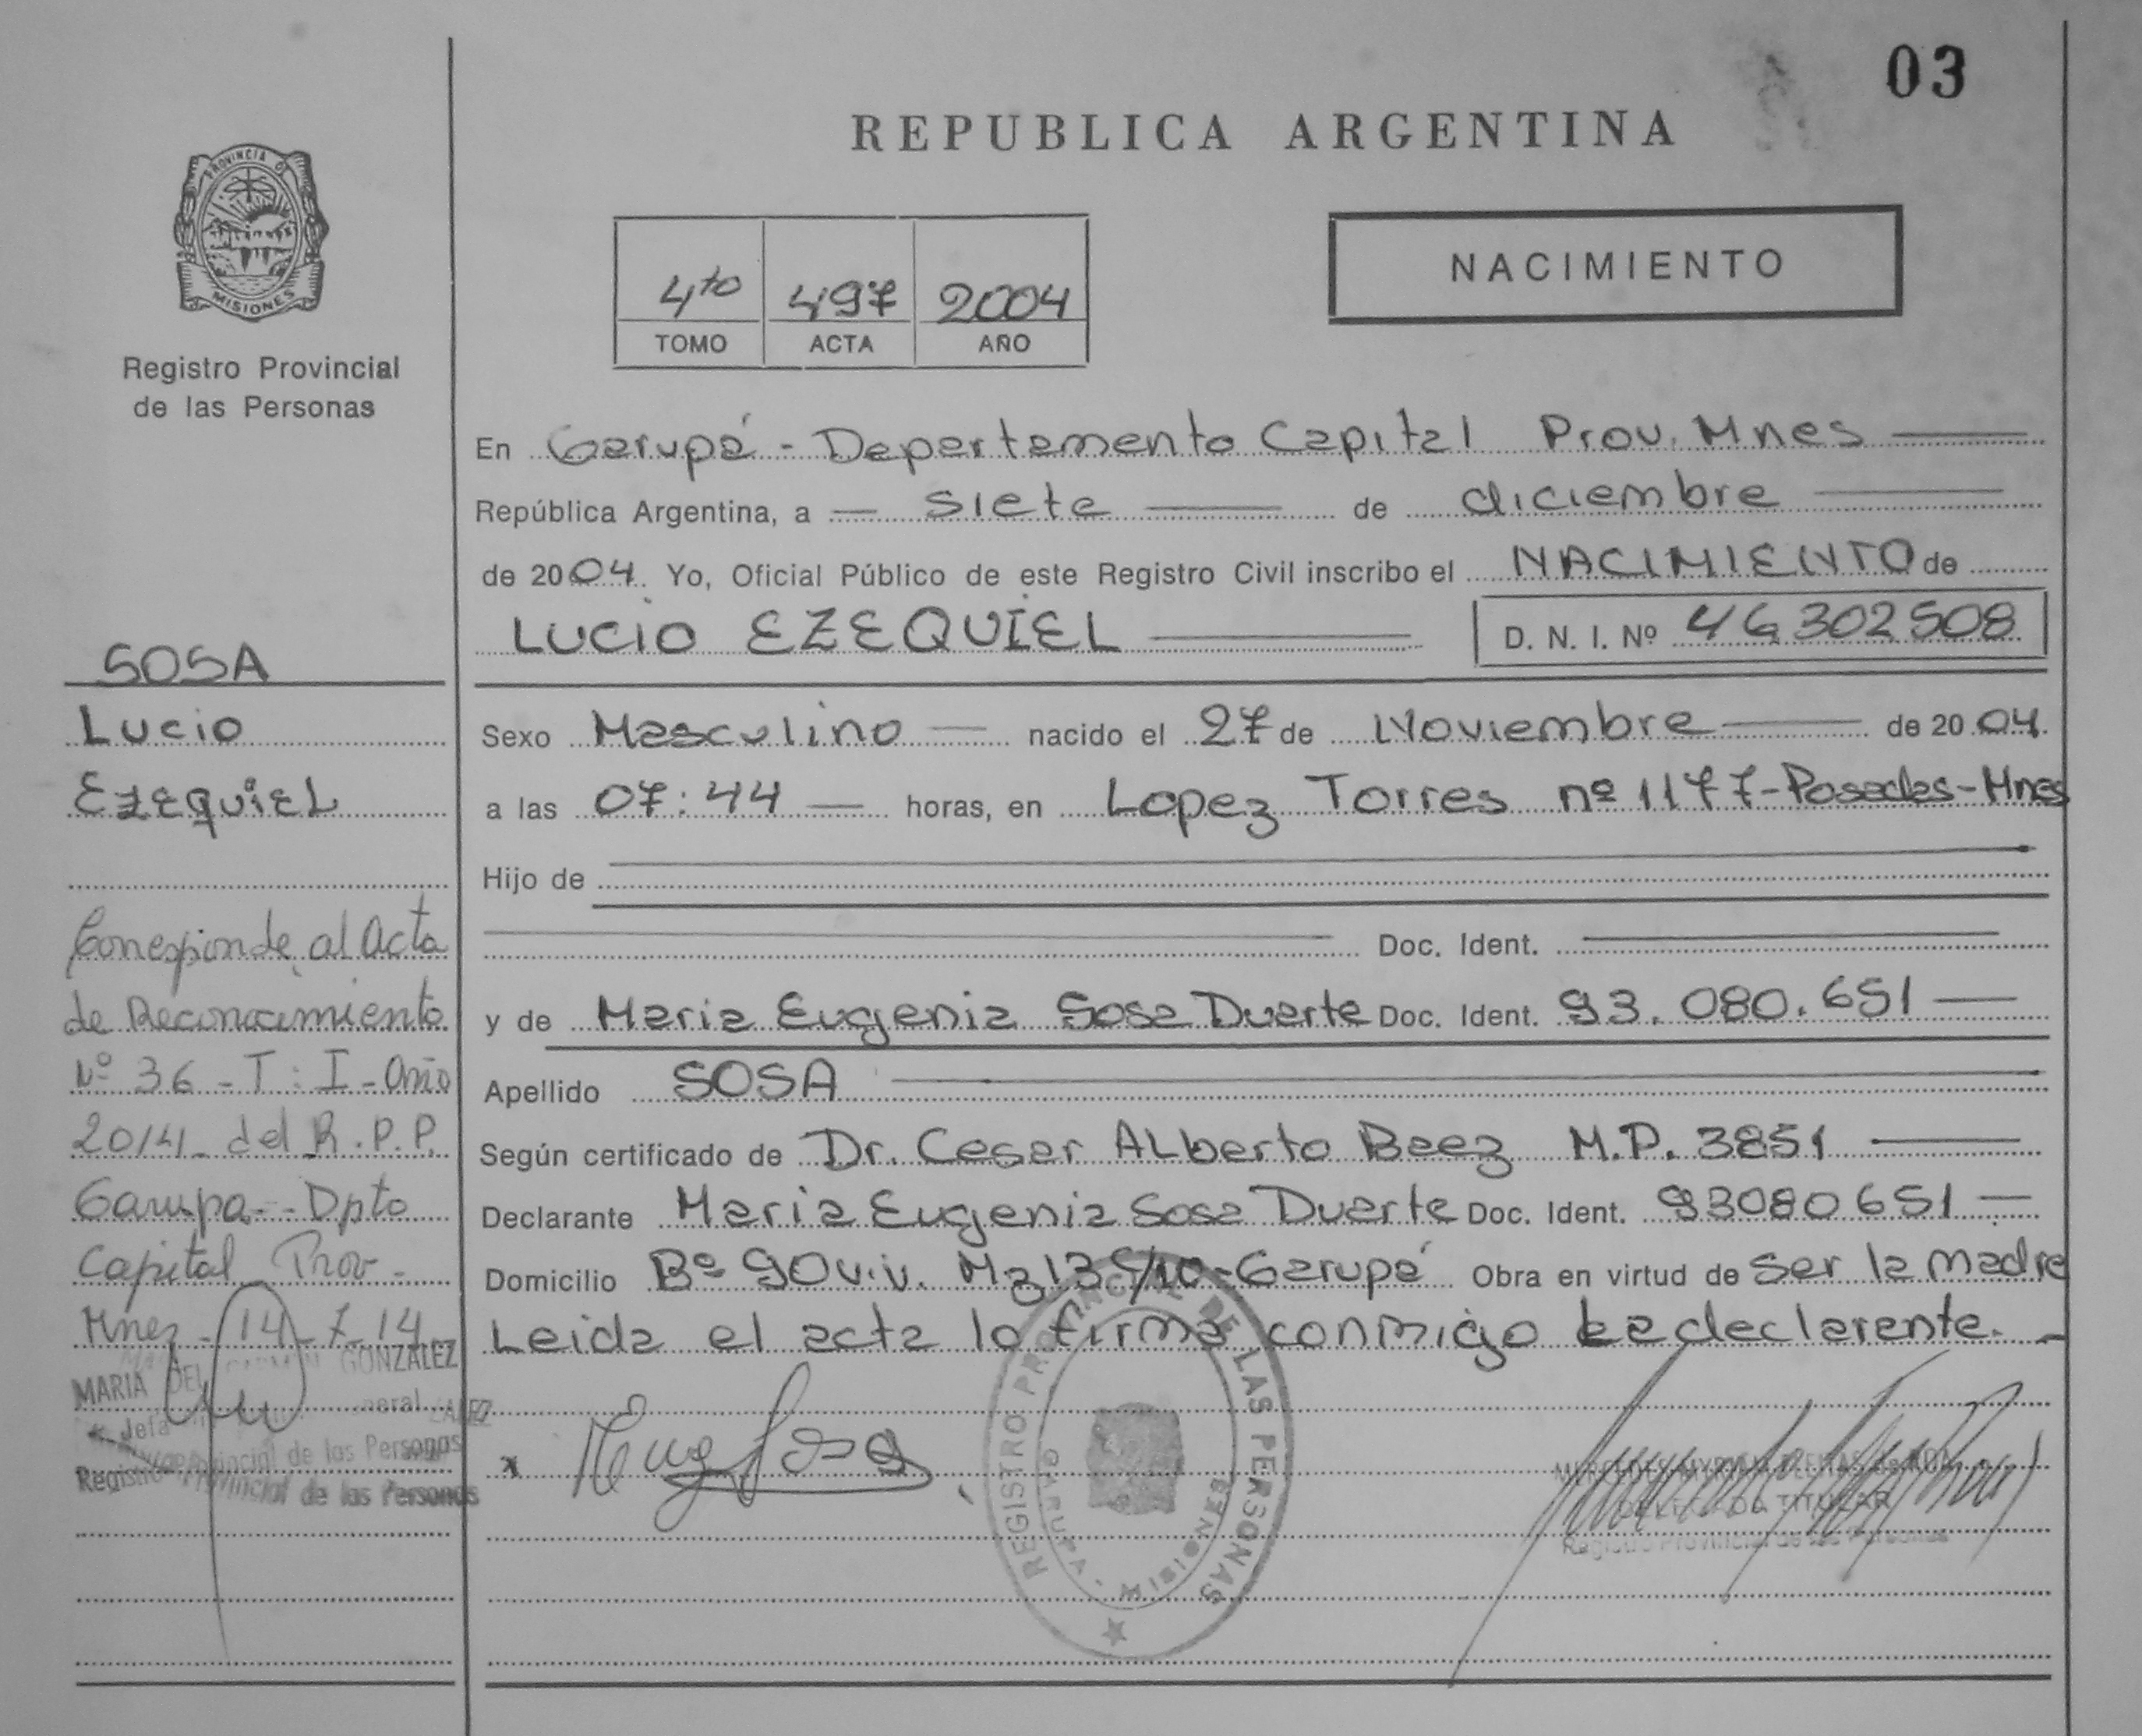 03
REPUBLICA ARGENTINA
PROVINCIA D
MISIONES
Registro Provincial
de las Personas
NACIMIENTO
4to 497 2004
TOMO ACTA AÑO
En Garupá - Departamento Capital Prov. Mnes
República Argentina, a siete de diciembre
de 2004. Yo, Oficial Público de este Registro Civil inscribo el NACIMIENTO de
LUCIO EZEQUIEL D. N. I. Nº 46302508
Sexo Masculino nacido el 27 de Noviembre de 2004.
a las 07:44 horas, en Lopez Torres nº 1177-Posadas-Mnes
Hijo de
Doc. Ident.
y de Maria Eugenia Sosa Duarte Doc. Ident. 93.080.651
Apellido SOSA
Según certificado de Dr. Cesar ALberto Baez M.P. 3851
Declarante Maria Eugenia Sosa Duarte Doc. Ident. 93080651
Domicilio Bº 90viv. Mz13 C/10-Garupá Obra en virtud de Ser la madre
Leida el acta lo firma conmigo La declarante.
SOSA
Lucio
EZEQUIEL
Corresponde al Acta
de Reconocimiento
Nº 36 - T: I - Año
2014 - del R.P.P.
Garupa - Dpto
Capital Prov -
Mnes - 14-7-14
MARIA DEL CARMEN GONZALEZ
Jefa
Registro Provincial de las Personas
x M Eug Sosa
REGISTRO PROVINCIAL DE LAS PERSONAS
GARUPA - MISIONES
DELEGADA TITULAR
Registro Provincial de las Personas